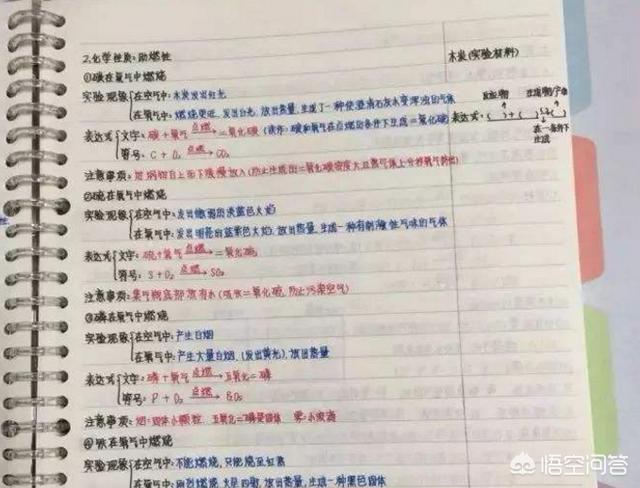 2.化学性质:助燃性
木炭(实验材料)
①碳在氧气中燃烧
实验现象
在空气中:木炭发出红光
在氧气中:燃烧更旺,发出白光,放出热量,生成了一种使澄清石灰水变浑浊的气体
反应物 生成物/产物
表达式:( )+( ) ( )
在一条件下
生成
表达式
文字:碳+氧气 点燃→ 二氧化碳(读作:碳和氧气在点燃的条件下生成二氧化碳)
符号:C+O₂ 点燃→ CO₂
注意事项:
②硫在氧气中燃烧
实验现象
在空气中:发出微弱的淡蓝色火焰
在氧气中:发出明亮的蓝紫色火焰,放出热量,生成一种有刺激性气味的气体
表达式
文字:硫+氧气 点燃→ 二氧化硫
符号:S+O₂ 点燃→ SO₂
注意事项:集气瓶底部放有水(吸收二氧化硫,防止污染空气)
③磷在氧气中燃烧
实验现象
在空气中:产生白烟
在氧气中:产生大量白烟,(发出黄光),放出热量
表达式
文字:磷+氧气 点燃→ 五氧化二磷
符号:P+O₂ 点燃→ P₂O₅
注意事项:烟:固体小颗粒 五氧化二磷是固体 雾:小液滴
④铁在氧气中燃烧
实验现象
在空气中:不能燃烧,只能烧至红热
在氧气中:剧烈燃烧,火星四射,放出热量,生成一种黑色固体
悟空问答